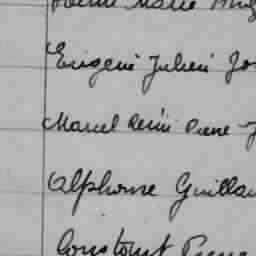 Marie
Eugène Julien Jo
Marcel Rémi Pierre J
Alphonse Guillau
Constant Pierre